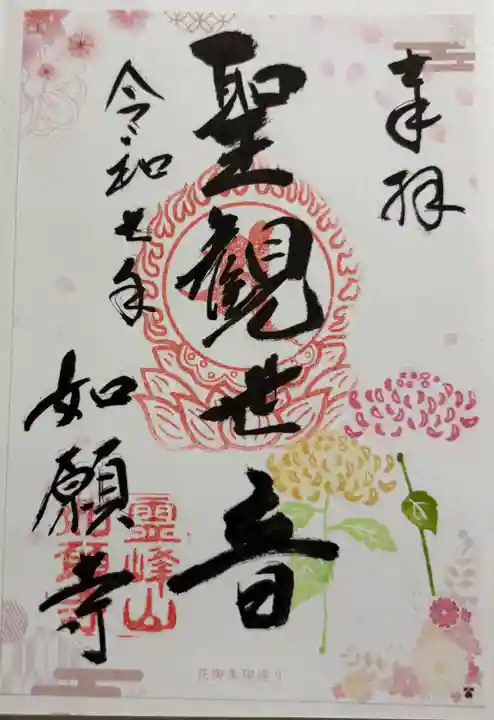 奉拝
聖観世音
令和七年
如願寺
霊峰山
如願寺
花御朱印巡り